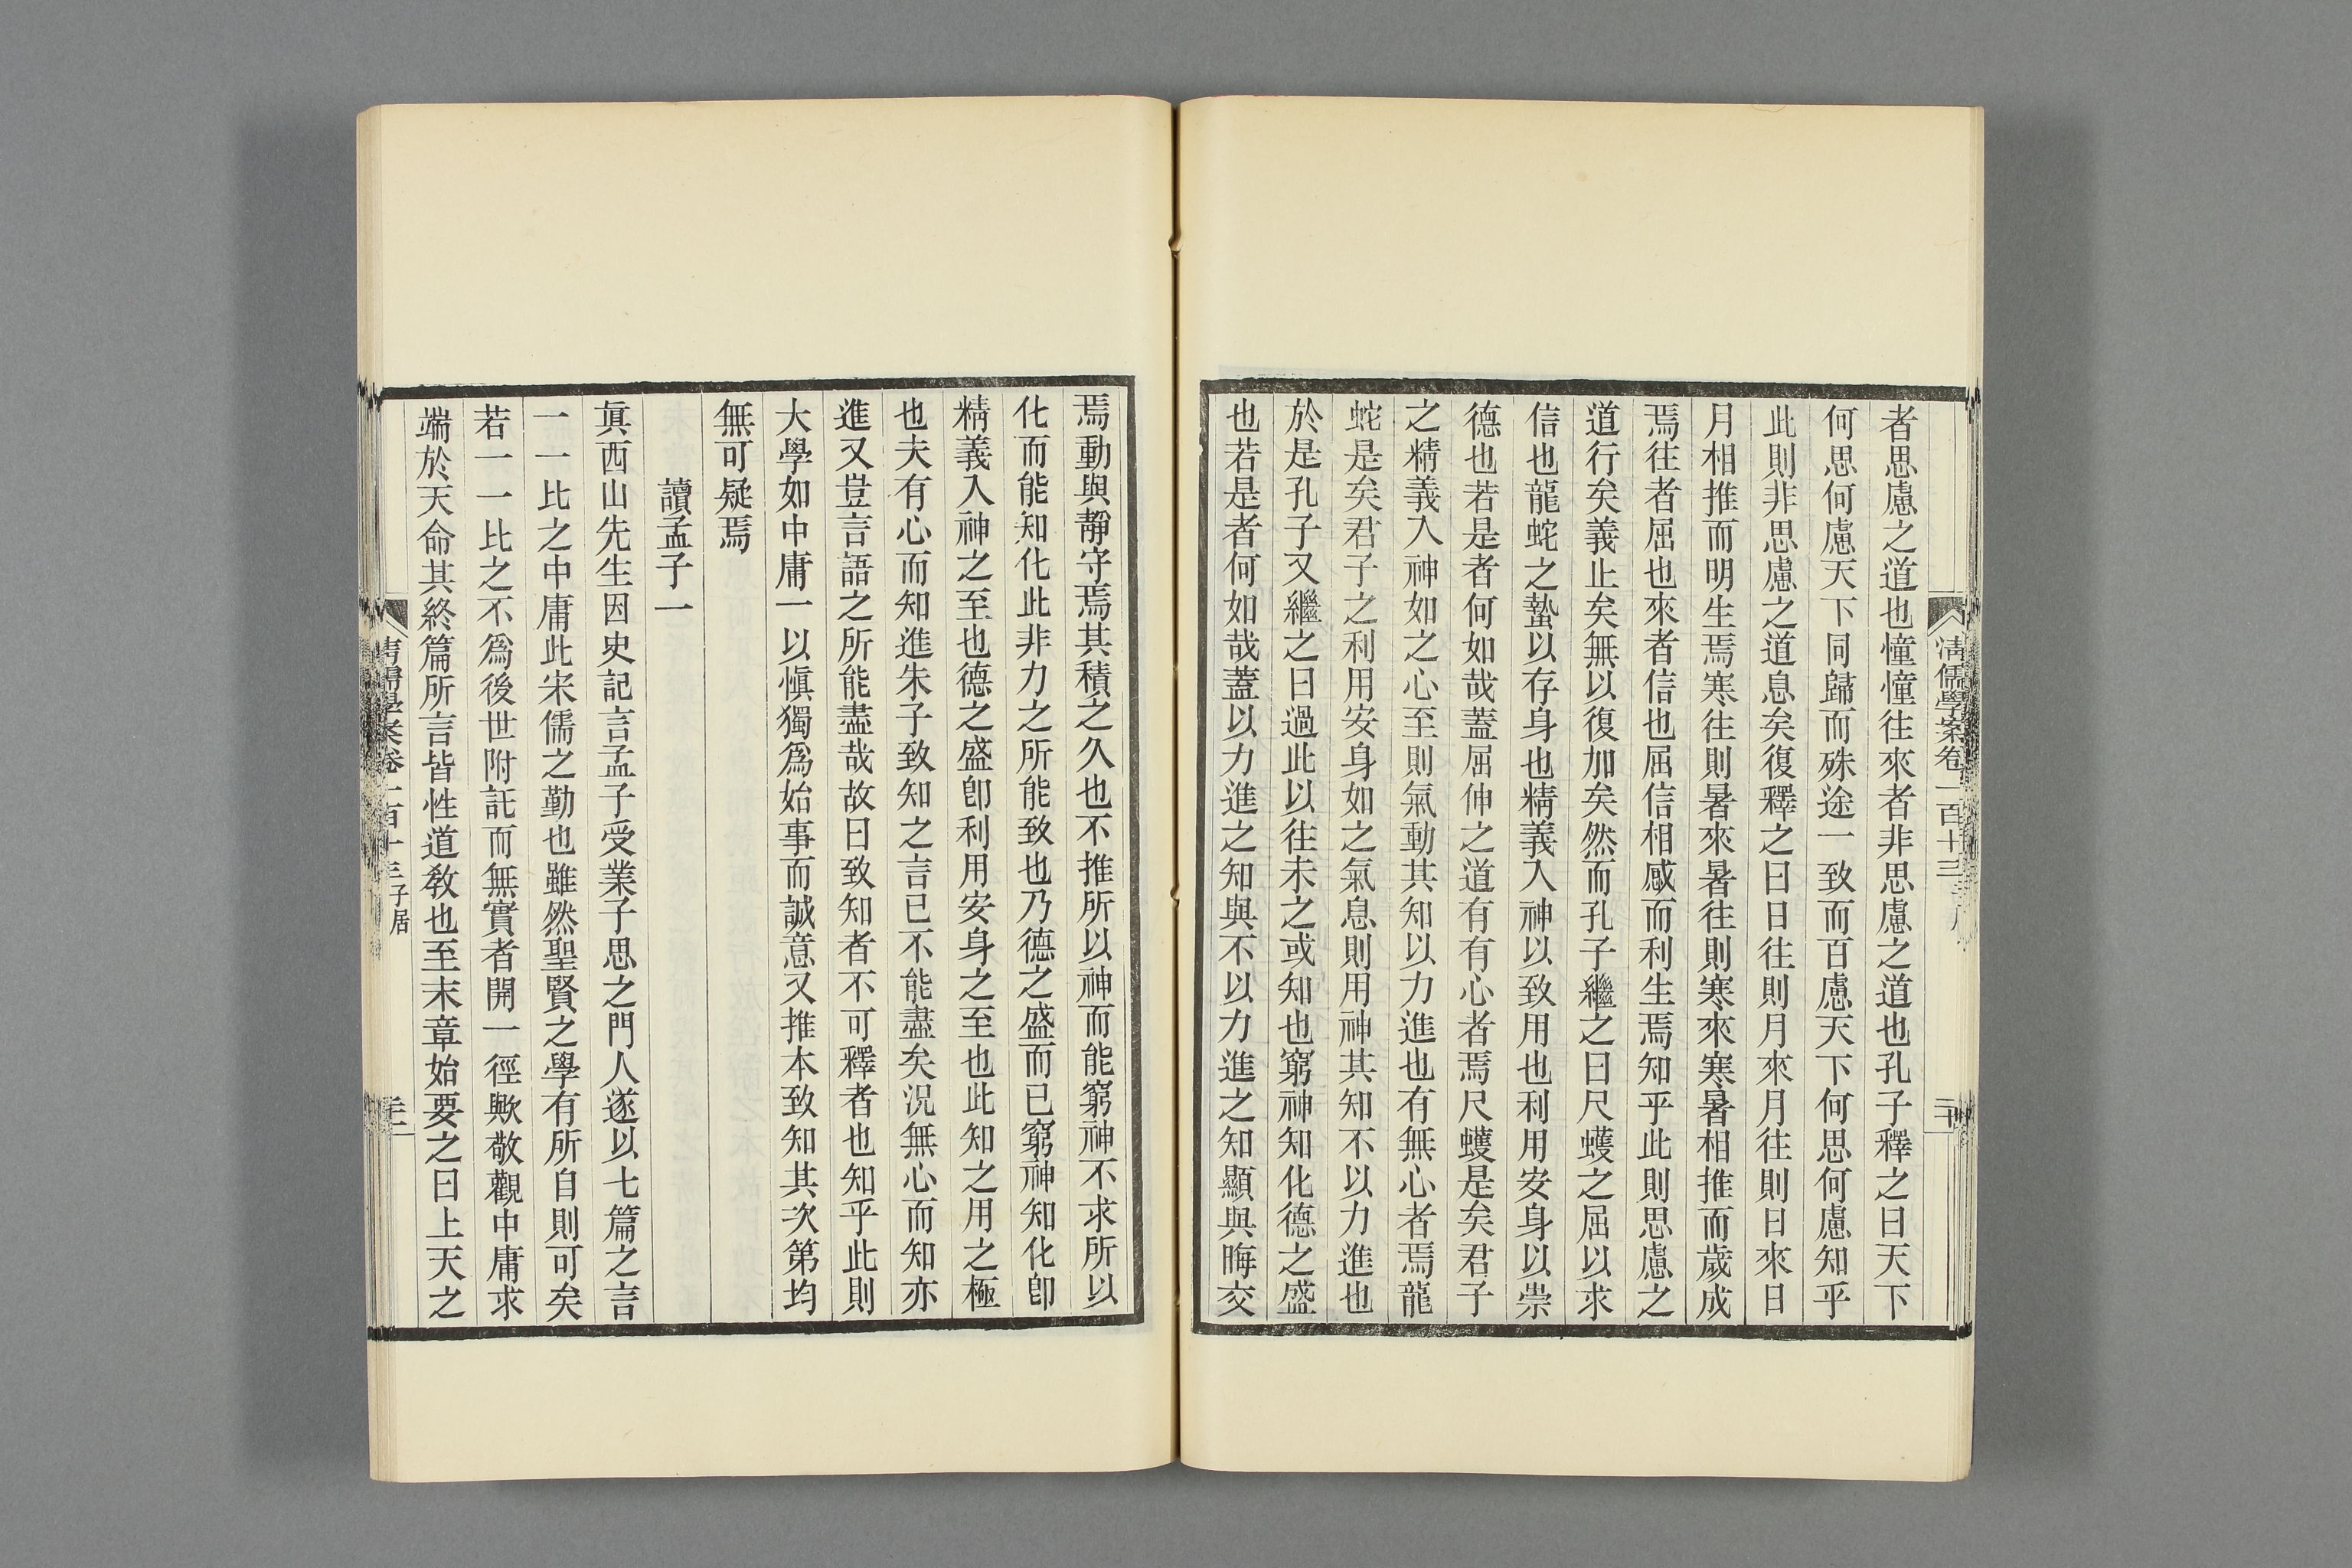 清儒學案卷一百十三
者思慮之道也憧憧往來者非思慮之道也孔子釋之曰天下
何思何慮天下同歸而殊途一致而百慮天下何思何慮知乎
此則非思慮之道息矣復釋之曰日往則月來月往則日來日
月相推而明生焉寒往則暑來暑往則寒來寒暑相推而歲成
焉往者屈也來者信也屈信相感而利生焉知乎此則思慮之
道行矣義止矣無以復加矣然而孔子繼之曰尺蠖之屈以求
信也龍蛇之蟄以存身也精義入神以致用也利用安身以崇
德也若是者何如哉蓋屈伸之道有有心者焉尺蠖是矣君子
之精義入神如之心至則氣動其知以力進也有無心者焉龍
蛇是矣君子之利用安身如之氣息則用神其知不以力進也
於是孔子又繼之曰過此以往未之或知也窮神知化德之盛
也若是者何如哉蓋以力進之知與不以力進之知顯與晦交
焉動與靜守焉其積之久也不推所以神而能窮神不求所以
化而能知化此非力之所能致也乃德之盛而已窮神知化卽
精義入神之至也德之盛卽利用安身之至也此知之用之極
也夫有心而知進朱子致知之言已不能盡矣況無心而知亦
進又豈言語之所能盡哉故曰致知者不可釋者也知乎此則
大學如中庸一以愼獨爲始事而誠意又推本致知其次第均
無可疑焉
讀孟子一
眞西山先生因史記言孟子受業子思之門人遂以七篇之言
一一比之中庸此宋儒之勤也雖然聖賢之學有所自則可矣
若一一比之不爲後世附託而無實者開一徑歟敬觀中庸求
端於天命其終篇所言皆性道教也至末章始要之曰上天之
清儒學案卷一百十三 子居